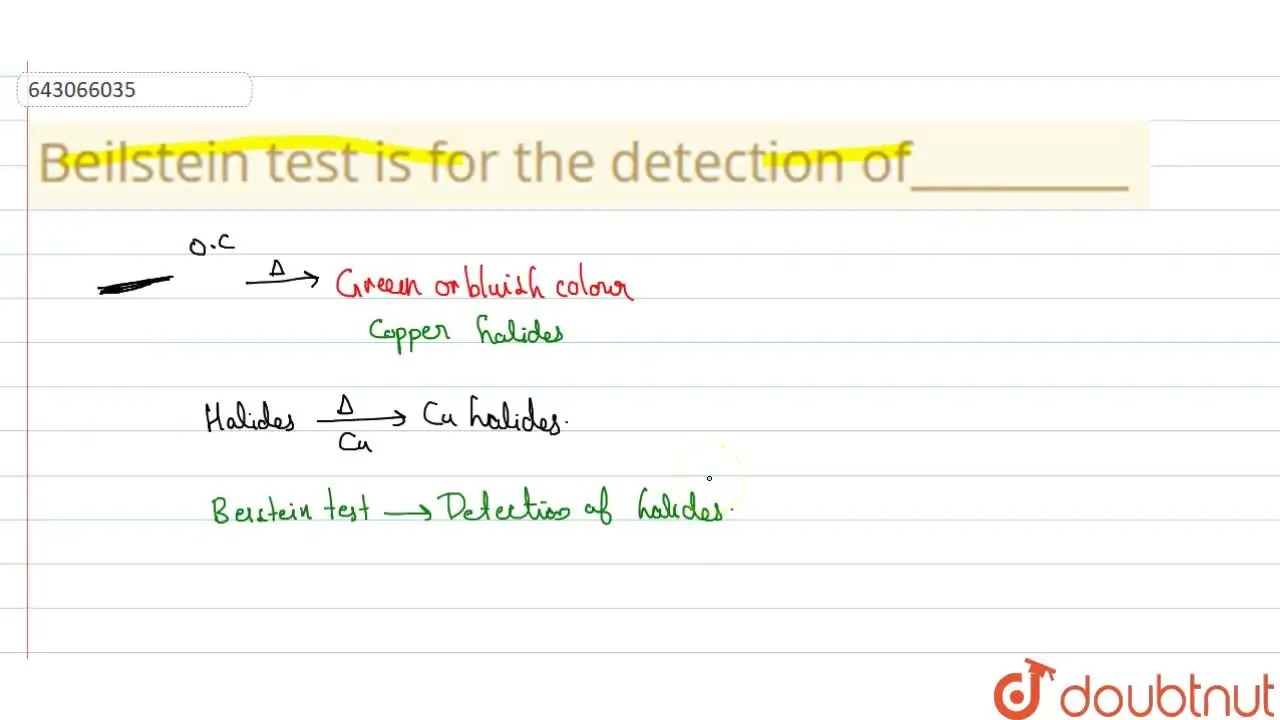 643066035
Beilstein test is for the detection of________
O.C
Δ → Green or bluish colour
Copper halides
Halides Δ → Cu halides.
Cu
Berstein test → Detection of halides.
doubtnut